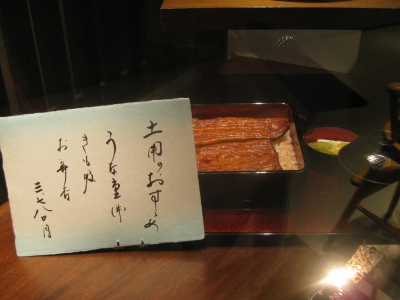 土用のおすすめ
うな重 御
きも吸
お新香
三、七八〇円